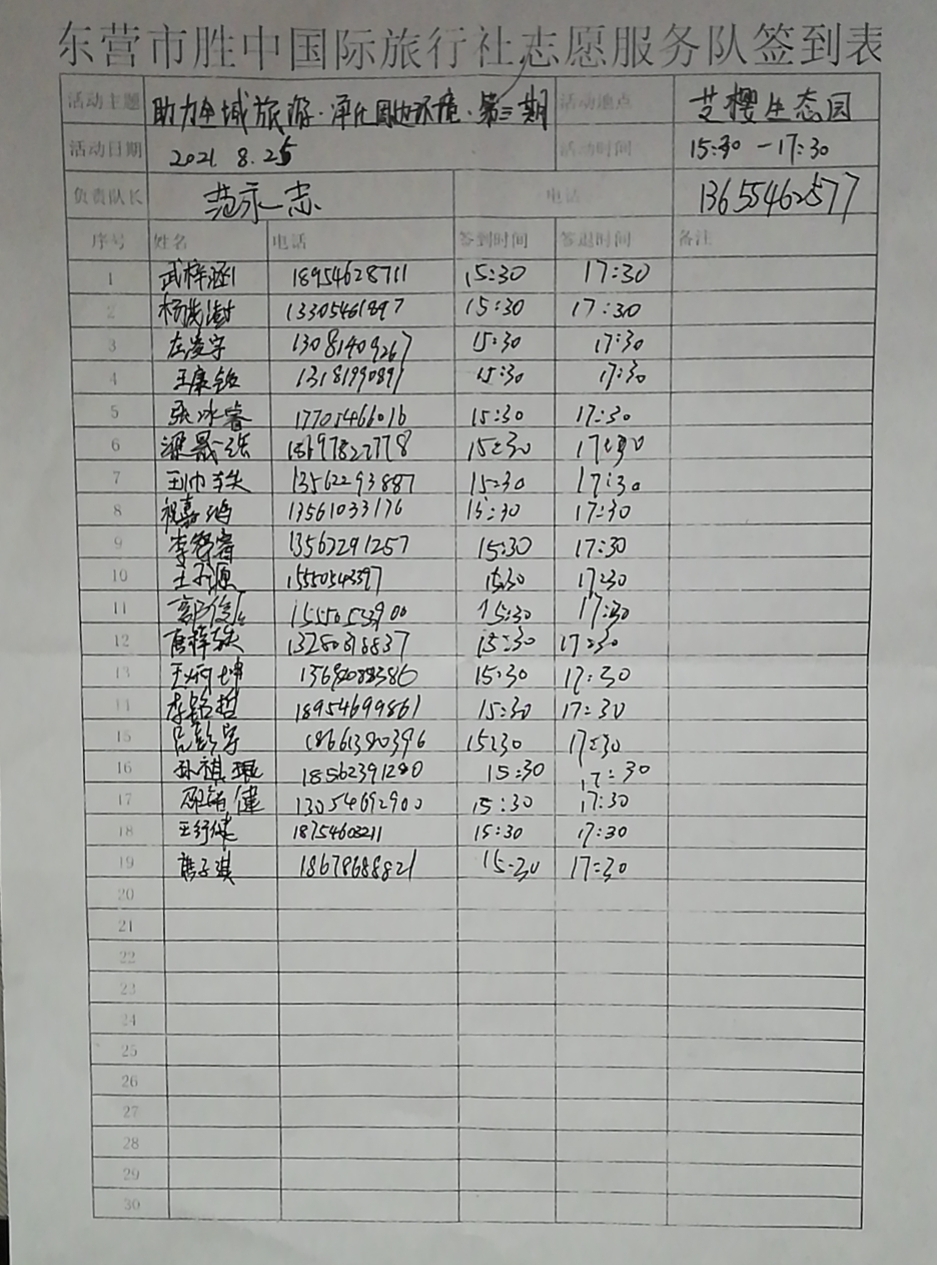 东营市胜中国际旅行社志愿服务队签到表
活动主题 助力全域旅游·净化周边环境·第三期 活动地点 芝樱生态园
活动日期 2021. 8. 25 活动时间 15:30 -17:30
负责队长 范永志 电话 13655462577
序号 姓名 电话 签到时间 签退时间 备注
1 武梓涵 18954628711 15:30 17:30
2 13305461897 15:30 17:30
3 左凌宇 13081409267 15:30 17:30
4 王康 13181990891 15:30 17:30
5 张冰睿 17705466016 15:30 17:30
6 梁晟 18697822778 15:30 17:30
7 13562293887 15:30 17:30
8 祝嘉鸿 13561033176 15:30 17:30
9 李智睿 13562291257 15:30 17:30
10 15550543397 15:30 17:30
11 郭俊 15550533900 15:30 17:30
12 唐梓轶 17:30 15:30
13 王炳坤 15:30 17:30
14 李铭哲 18954699861 15:30 17:30
15 吕彭宇 18661390396 15:30 17:30
16 孙祺琨 18562391290 15:30 17:30
17 邵铭健 13054692900 15:30 17:30
18 王行健 15:30 17:30
19 18678688821 15:30 17:30
20
21
22
23
24
25
26
27
28
29
30